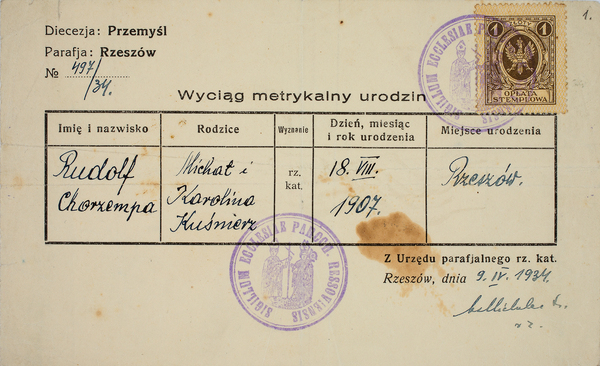 1.
Diecezja: Przemyśl
Parafja: Rzeszów
№ 497/34.
ZŁOTY
1 1
OPŁATA
STEMPLOWA
Wyciąg metrykalny urodzin
Imię i nazwisko Rodzice Wyznanie Dzień, miesiąc i rok urodzenia Miejsce urodzenia
Rudolf Michał i rz. 18. VIII. Rzeszów.
Chorzempa Karolina kat. 1907.
Kuśnierz
SIGILLUM ECCLESIAE PAROCH. RESSOVIENSIS
Z Urzędu parafjalnego rz. kat.
Rzeszów, dnia 9. IV. 1934.